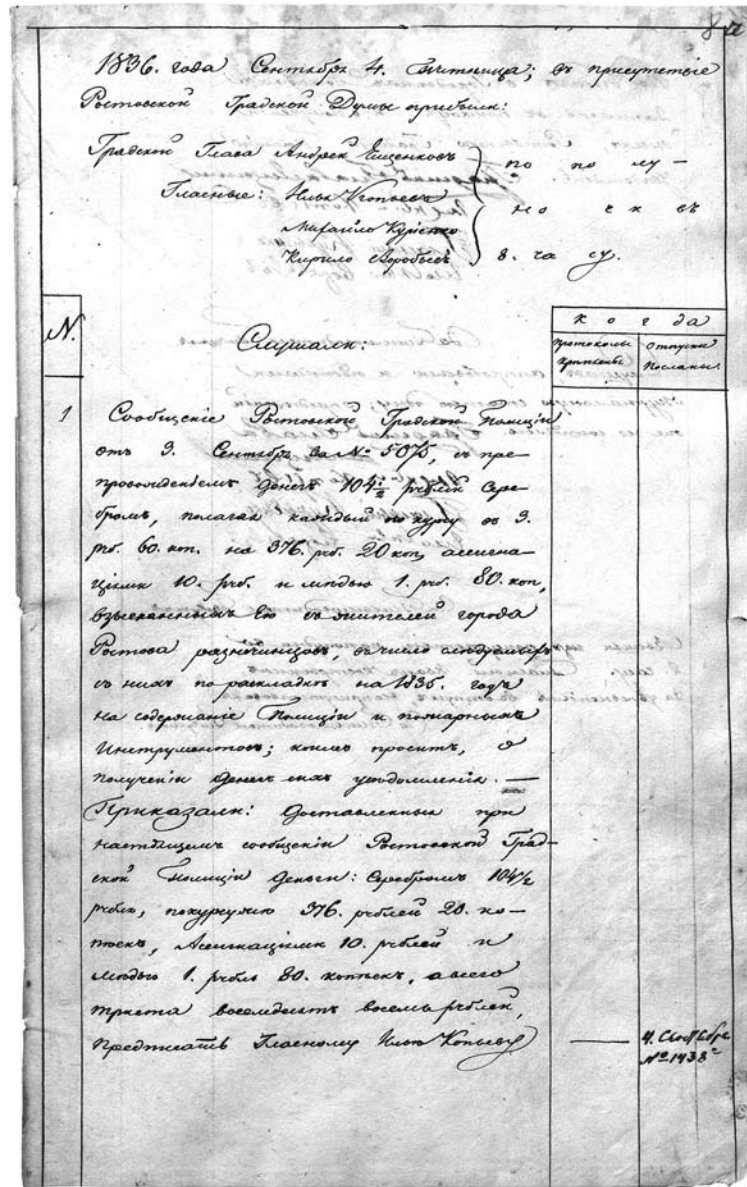 1836. года Сентября 4. Пятница; въ присутствіе
Ростовской Градской Думы прибыли:
Градской Глава Андрей Ященковъ
Гласные: Илья Копьевъ
Михайло
Кирило Воробьевъ
по полу-
ночи въ
8. часу.
N.
Слушали:
когда
протоколы
отпуски
посланы.
1
Сообщеніе Ростовской Градской Полиціи
отъ 3. Сентября за № 5075, съ пре
провожденіемъ денегъ 104½ рублей сере
бромъ, полагая каждый по курсу въ 3.
руб. 60. коп. на 376. руб. 20 коп, ассигна-
ціями 10. руб. и мѣдью 1. руб. 80. коп,
взысканныхъ Ею съ жителей города
Ростова разночинцовъ, въ число слѣдуемыхъ
съ нихъ по раскладкѣ на 1835. годъ
на содержаніе Полиціи и пожарныхъ
Инструментовъ; коимъ проситъ, о
полученіи денегъ сихъ увѣдомленія. —
Приказали: Доставленныя при
настоящемъ сообщеніи Ростовской Град-
ской Полиціи деньги: Серебромъ 104½
рубли, 376. рублей 20. ко-
пѣекъ, Ассигнаціями 10. рублей и
мѣдью 1. рубль 80. копѣекъ, а всего
триста восемдесятъ восемь рублей,
предписать Гласному Ильѣ Копьеву
4. Сентября
№ 1438